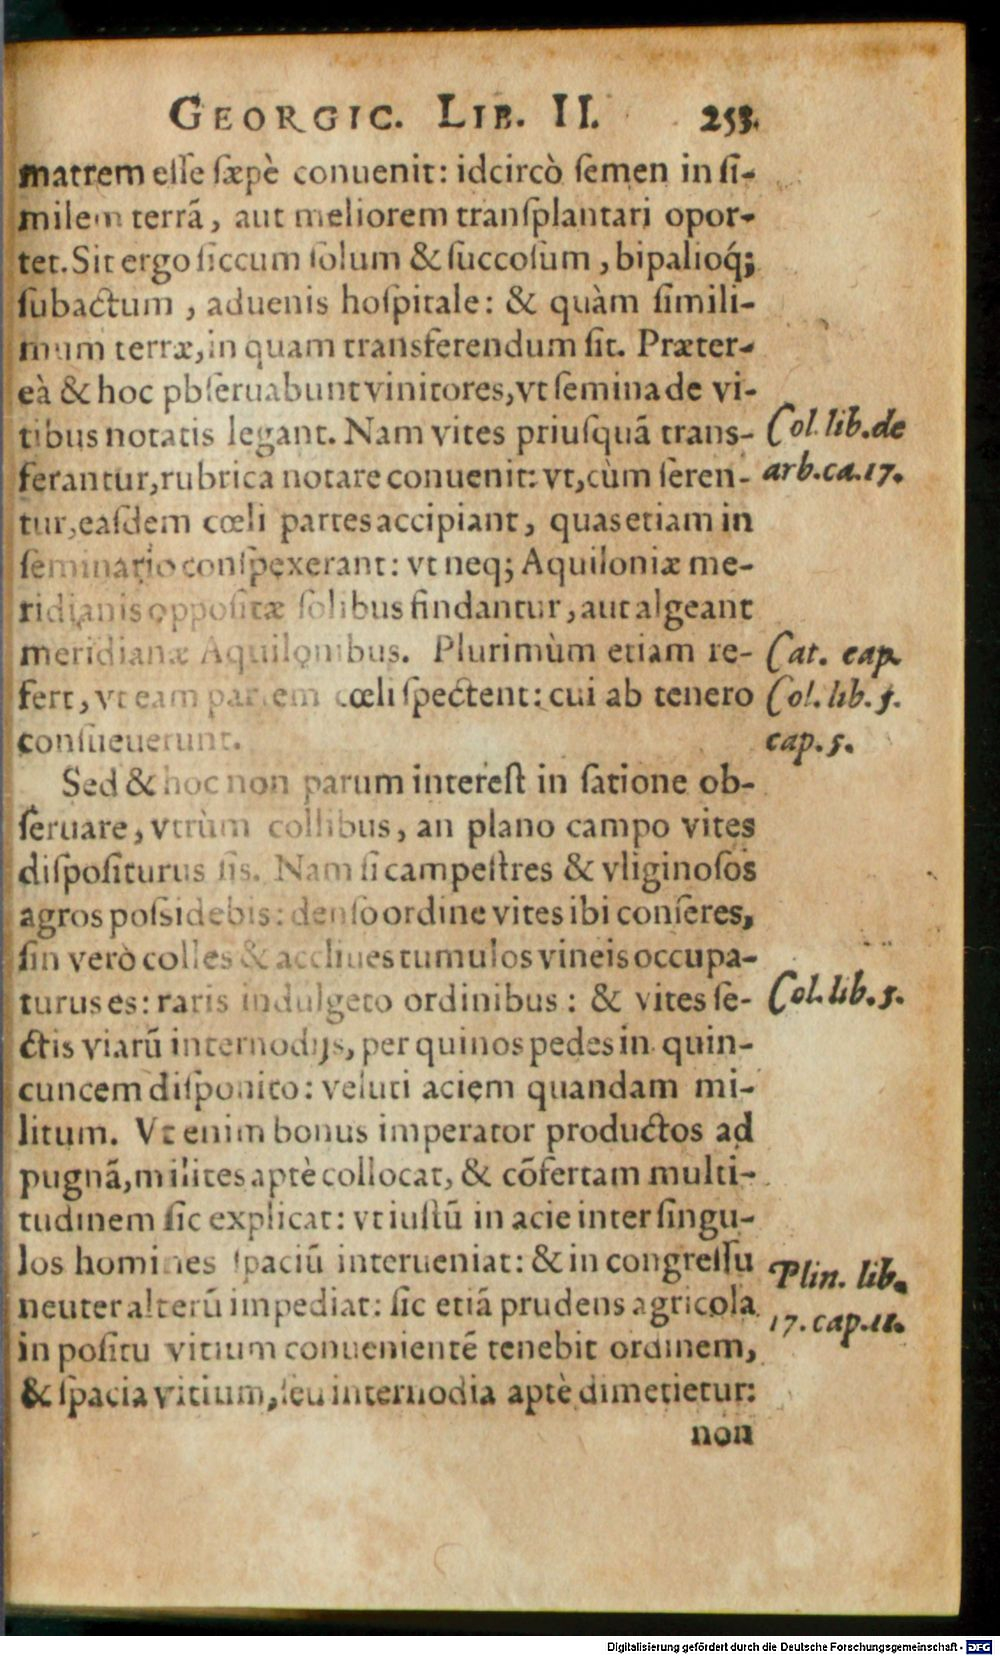 GEORGIC. LIB. II. 253.
matrem eſſe ſæpè conuenit: idcircò ſemen in ſi-
milem terrā, aut meliorem tranſplantari opor-
tet. Sit ergo ſiccum ſolum & ſuccoſum, bipalioq́;
ſubactum, aduenis hoſpitale: & quàm ſimili-
mum terræ, in quam transferendum ſit. Præter-
eà & hoc pbſeruabunt vinitores, vt ſemina de vi-
tibus notatis legant. Nam vites priuſquā trans-
Col. lib. de
ferantur, rubrica notare conuenit: vt, cùm ſeren-
arb. ca. 17.
tur, eaſdem cœli partes accipiant, quas etiam in
ſeminario conſpexerant: vt neq; Aquiloniæ me-
ridianis oppoſitæ ſolibus findantur, aut algeant
meridianæ Aquilonibus. Plurimùm etiam re-
Cat. cap.
fert, vt eam partem cœli ſpectent: cui ab tenero
Col. lib. 5.
conſueuerunt.
cap. 5.
Sed & hoc non parum intereſt in ſatione ob-
ſeruare, vtrùm collibus, an plano campo vites
diſpoſiturus ſis. Nam ſi campeſtres & vliginoſos
agros poſsidebis: denſo ordine vites ibi conſeres,
ſin verò colles & accliues tumulos vineis occupa-
turus es: raris indulgeto ordinibus: & vites ſe-
Col. lib. 5.
ctis viarū internodijs, per quinos pedes in quin-
cuncem diſponito: veluti aciem quandam mi-
litum. Vt enim bonus imperator productos ad
pugnā, milites aptè collocat, & cōfertam multi-
tudinem ſic explicat: vt iuſtū in acie inter ſingu-
los homines ſpaciū interueniat: & in congreſſu
Plin. lib.
neuter alterū impediat: ſic etiā prudens agricola
17. cap. 11.
in poſitu vitium conuenientē tenebit ordinem,
& ſpacia vitium, ſeu internodia aptè dimetietur:
non
Digitalisierung gefördert durch die Deutsche Forschungsgemeinschaft - DFG